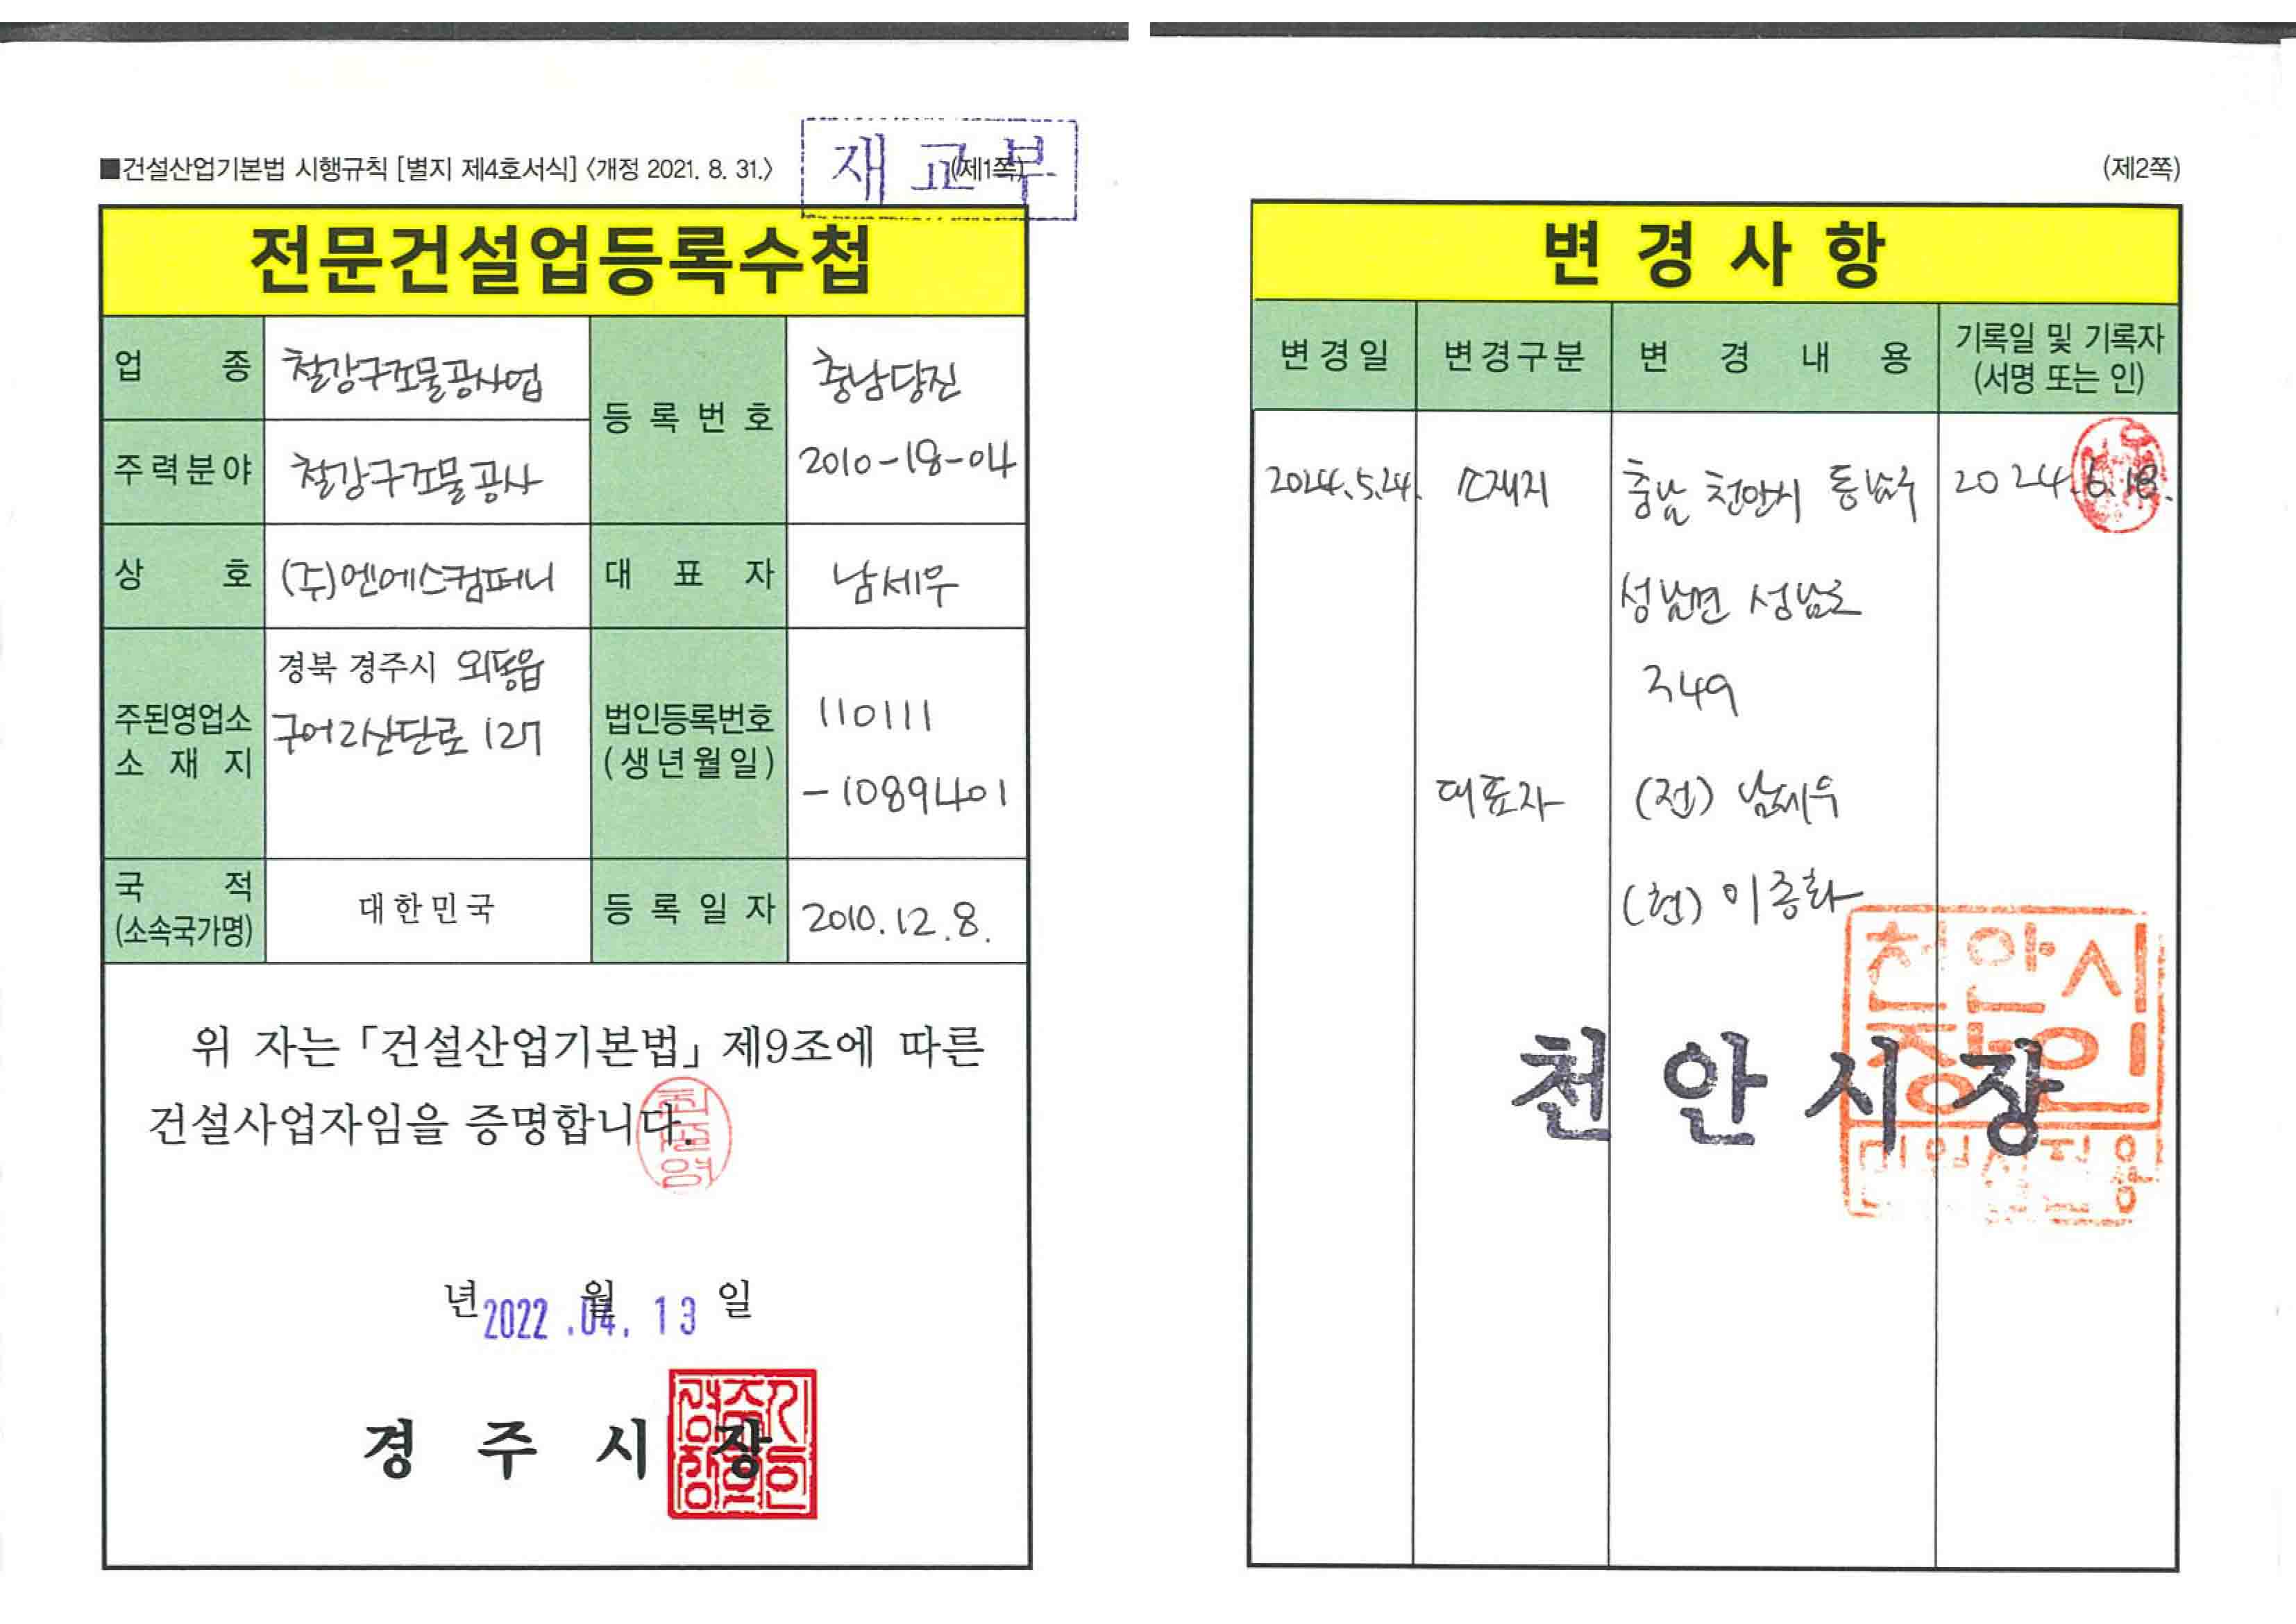 ■건설산업기본법 시행규칙 [별지 제4호서식] <개정 2021. 8. 31.>
(제1쪽)
재교부
전문건설업등록수첩
업 종
철강구조물공사업
등록번호
충남당진
2010-18-04
주력분야
철강구조물공사
상 호
(주)엔에스컴퍼니
대 표 자
남세우
주된영업소
소 재 지
경북 경주시 외동읍
구어2산단로 127
법인등록번호
(생년월일)
110111
-1089401
국 적
(소속국가명)
대한민국
등록일자
2010.12.8.
위 자는 「건설산업기본법」 제9조에 따른
건설사업자임을 증명합니다.
년 월 일
2022.04.13
경 주 시 장
(제2쪽)
변경사항
변경일
변경구분
변 경 내 용
기록일 및 기록자
(서명 또는 인)
2024.5.24.
소재지
충남 천안시 동남구
2024.6.18.
성남면 성남로
349
대표자
(전) 남세우
(현) 이종화
천안시
장인
천 안 시 장